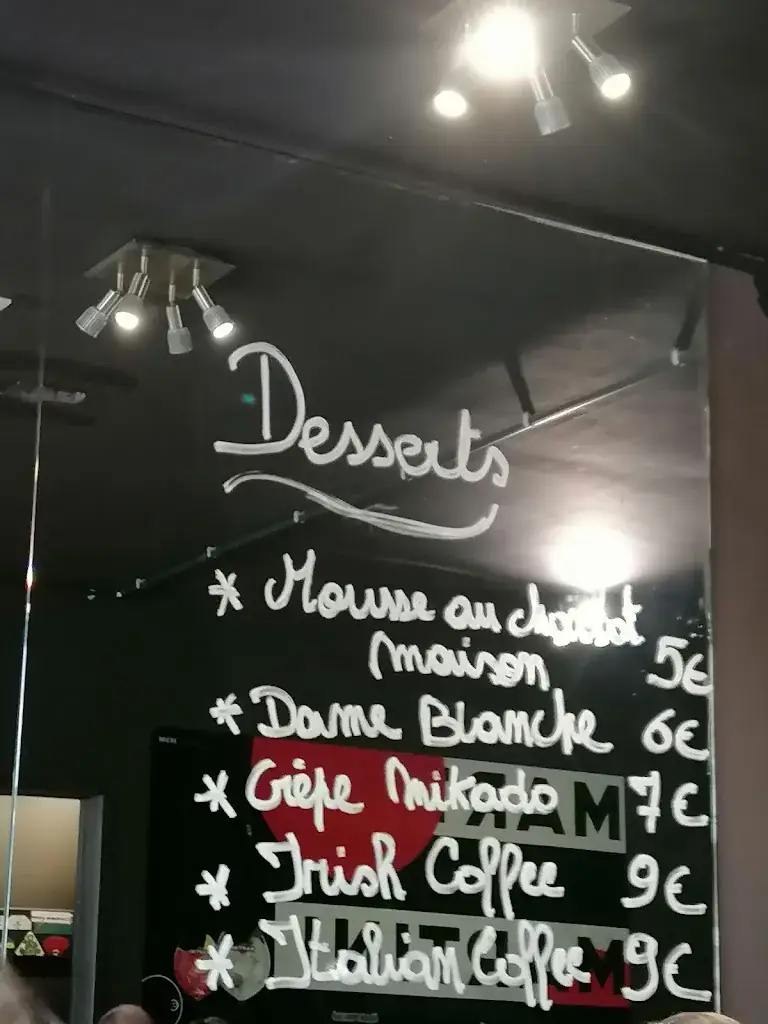 Desserts
* Mousse au chocolat
maison 5€
* Dame Blanche 6€
* Crêpe Mikado 7€
* Irish Coffee 9€
* Italian Coffee 9€